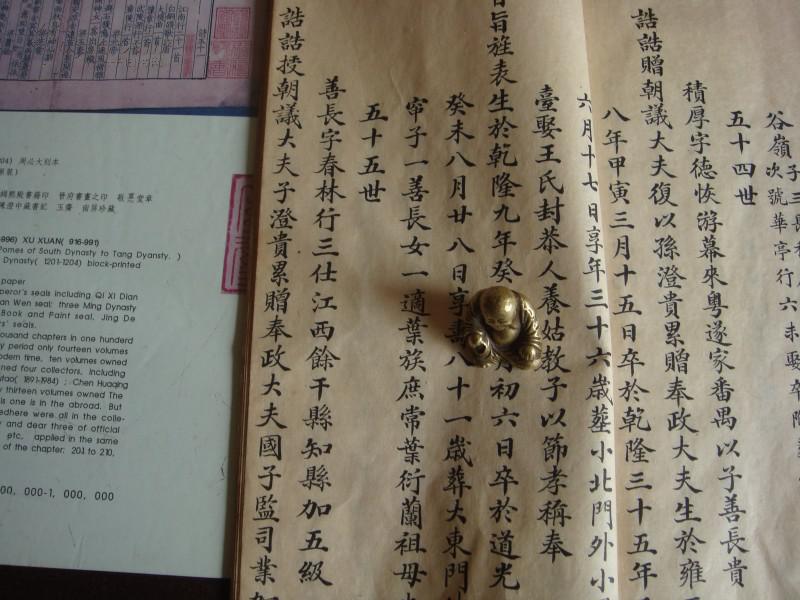 谷嶺次號華亭行六未娶卒
子三長
五十四世
積厚字德恢游幕來粵遂家番禺以子善長貴
誥誥贈朝議大夫復以孫澄貴累贈奉政大夫生於雍
八年甲寅三月十五日卒於乾隆三十五年
六月十七日享年三十六歲塟小北門外小
臺娶王氏封恭人養姑教子以節孝稱奉
旨旌表生於乾隆九年癸 初六日卒於道光
癸未八月廿八日享壽八十一歲葬大東門
帘子一善長女一適葉族庶常葉衍蘭祖母
五十五世
善長字春林行三仕江西餘干縣知縣加五級
誥誥授朝議大夫子澄貴累贈奉政大夫國子監司業加
04) 周必大刻本
緝熙殿書籍印 晉府書畫之印 敬悳堂章
陳澄中藏書記 玉齋 南屏珍藏
996) XU XUAN( 916-991)
Pomes of South Dynasty to Tang Dyansty. )
Dynasty( 1201-1204) block-printed
paper
peror's seals including QI XI Dian
an Wen seal; three Ming Dynasty
Book and Paint seal, Jing De
rs' seals.
ousand chapters in one hundred
y period only fourteen volumes
odern time, ten volumes owned
ned four collectors, including
utao( 1891-1984) ; Chen Huaqing
y thirteen volumes owned The
is one is in the abroad. But
edhere were all in the colle-
y and dear three of official
etc, applied in the same
of the chapter: 201 to 210,
00, 000-1, 000, 000